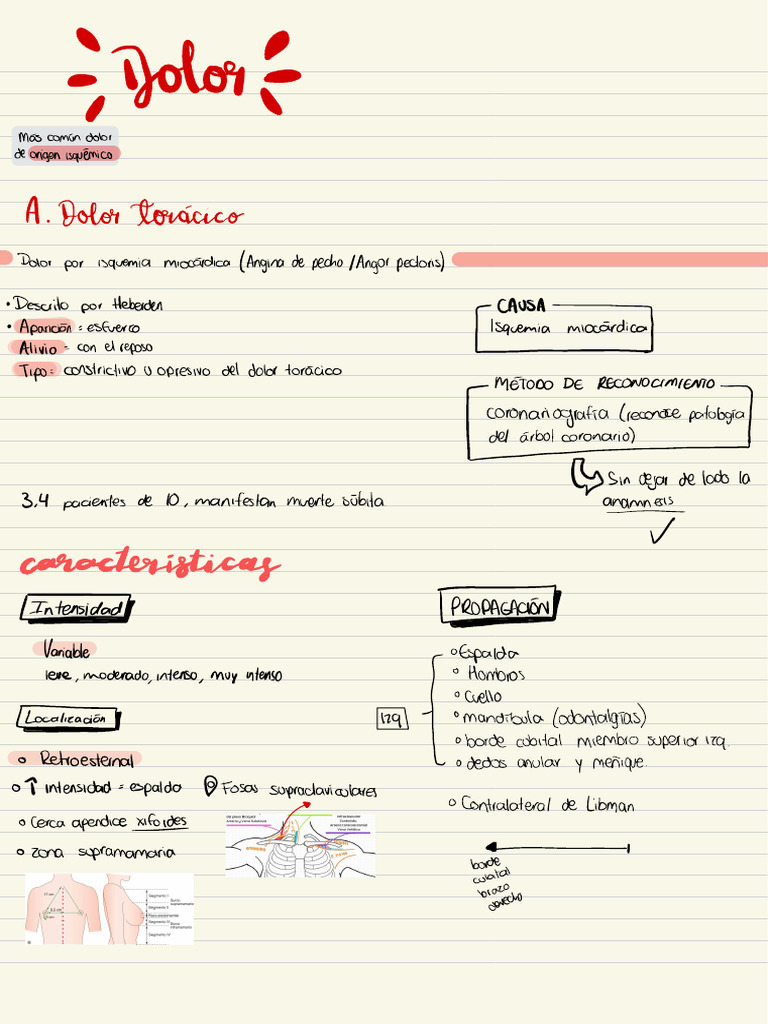 Dolor
Más común dolor
de origen isquémico
A. Dolor torácico
Dolor por isquemia miocárdica (Angina de pecho / Angor pectoris)
• Descrito por Heberden
• Aparición = esfuerzo
Alivio = con el reposo
Tipo: constrictivo u opresivo del dolor torácico
CAUSA
Isquemia miocárdica
MÉTODO DE RECONOCIMIENTO
coronariografía (reconoce patología
del árbol coronario)
Sin dejar de lado la
anamnesis
3.4 pacientes de 10, manifiestan muerte súbita
características
Intensidad
Variable
leve, moderado, intenso, muy intenso
Localización
Retroesternal
↑ intensidad = espalda
Cerca apendice xifoides
zona supramamaria
Fosas supraclaviculares
17 cm
Segmento I
Segmento II
Segmento III
Segmento IV
PROPAGACIÓN
Izq
Espalda
Hombros
Cuello
mandíbula (odontalgias)
borde cubital miembro superior izq.
dedos anular y meñique.
Contralateral de Libman
borde
cubital
brazo
derecho